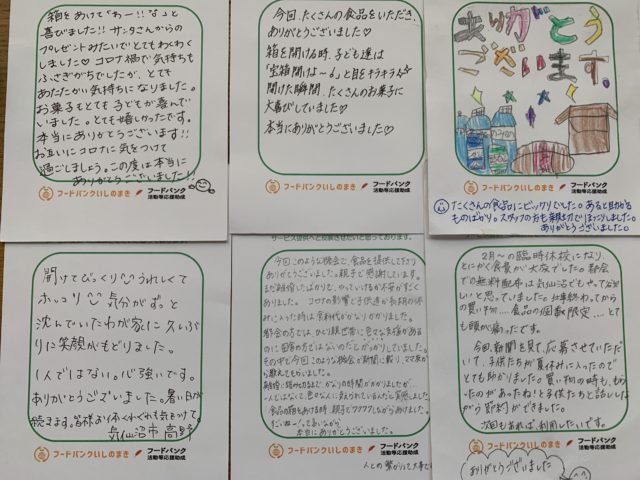 箱をあけて「わー!!な」と
喜びました!! サンタさんからの
プレゼントみたいでとてもわくわく
しました♡ コロナ禍で気持ちも
ふさぎがちでしたが、とても
あたたかい気持ちになりました。
お菓子もとても子どもが喜んで
いました。とても嬉しかったです。
本当にありがとうございます!!
お互いにコロナに気をつけて
過ごしましょう。この度は本当に
ありがとうございました!!
フードバンクいしのまき
フードバンク
活動等応援助成
今回、たくさんの食品をいただき、
ありがとうございました♡
箱を開ける時、子ども達は
「宝箱開けよ〜」と目をキラキラ☆
開けた瞬間、たくさんのお菓子に
大喜びしていました♡
本当にありがとうございました♡
フードバンクいしのまき
フードバンク
活動等応援助成
ありがとう
ございます。
フードバンクいしのまき
フードバンク
活動等応援助成
たくさんの食品にビックリでした。あると助かる
ものばかり。スタッフの方も親切で
ありがとうございました。
開けてびっくり うれしくて
ホッコリ 気分がずっと
沈んでいたわが家に久しぶ
りに笑顔がもどりました。
1人ではない。心強いです。
ありがとうございます。暑い日が
続きます。皆様お体くれぐれも気をつけて。
気仙沼市 高野
フードバンクいしのまき
フードバンク
活動等応援助成
サービス提供へと反映させたいと思っております。
今回このような機会で、食品を提供して下さり
ありがとうございました。親子で感謝しています。
まだ離婚したばかりで、やっていけるか不安がたくさん
ありました。コロナの影響と子供達が長期の休
みに入った時は食料代がかなりかかりました。
本当にありがとうございました。
フードバンクいしのまき
フードバンク
活動等応援助成
人との繋がりって大事
2月〜の臨時休校になり、
とにかく食費が大変でした。都会
での無料配布は気仙沼でもやって欲
しいと思っていました。仕事終わってから
の買い物…食品の個数限定…とて
も頭が痛かったです。
今回、新聞を見て、応募させていただ
いて、子供たちが夏休みに入ったので
とても助かりました。買い物の時も、もら
ったのがあったね!と子供たちと話しな
がら節約ができました。
次回もあれば、利用したいです。
フードバンクいしのまき
フードバンク
活動等応援助成
ありがとうございました